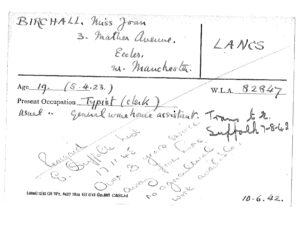 BIRCHALL, Miss Joan
3. Mather Avenue.
Eccles.
nr. Manchester.
LANCS
Age 19. (5.4.23.)
W.L.A. 82847
Present Occupation Typist (clerk)
usual " general warehouse assistant.
Trans to E.
Suffolk 7-8-43
Resigned
E. Suffolk
17.11.45
Over 3 years service
work available
10.6.42.